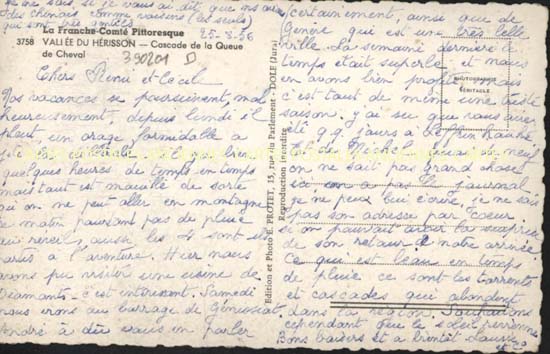 je ne sais si je vous ai dit que
des chinois comme voisins (les seuls)
qui sont très
25-8-56
La Franche-Comté Pittoresque
3758 VALLÉE DU HÉRISSON — Cascade de la Queue
de Cheval
390201 D
Chers Rémi et Cécile
Nos vacances se poursuivent, mal
heureusement, depuis lundi il
pleut un orage formidable a
il fait bien
quelques heures de temps en temps
mais tout est mouillé de sorte
qu'on ne peut aller en montagne
ce matin pourtant pas de pluie
au réveil, aussi les 4 sont
partis à l'aventure. Hier nous
avons pu visiter une usine de
diamants - c'est intéressant. Samedi
nous irons au barrage de Génissiat,
André a dû vous en parler
certainement, ainsi que de
Genève qui est une très belle
ville. La semaine dernière le
temps était superbe et nous
en avons bien profité, mais
c'est tout de même une triste
saison. J'ai su que vous aviez
été qq. jours à
Et de Michel, quoi de neuf
on ne sait pas grand chose
si on a pas le journal
je ne peux lui écrire, je ne sais
pas son adresse par coeur
si on pouvait avoir la surprise
de son retour à notre arrivée
Ce qui est beau en temps
de pluie ce sont les torrents
et cascades qui abondent
dans la région. Souhaitons
cependant que le soleil revienne
Bons baisers et à bientôt
PHOTOGRAPHIE
VÉRITABLE
Edition et Photo E. PROTET, 15, rue du Parlement - DOLE (Jura)
Reproduction interdite